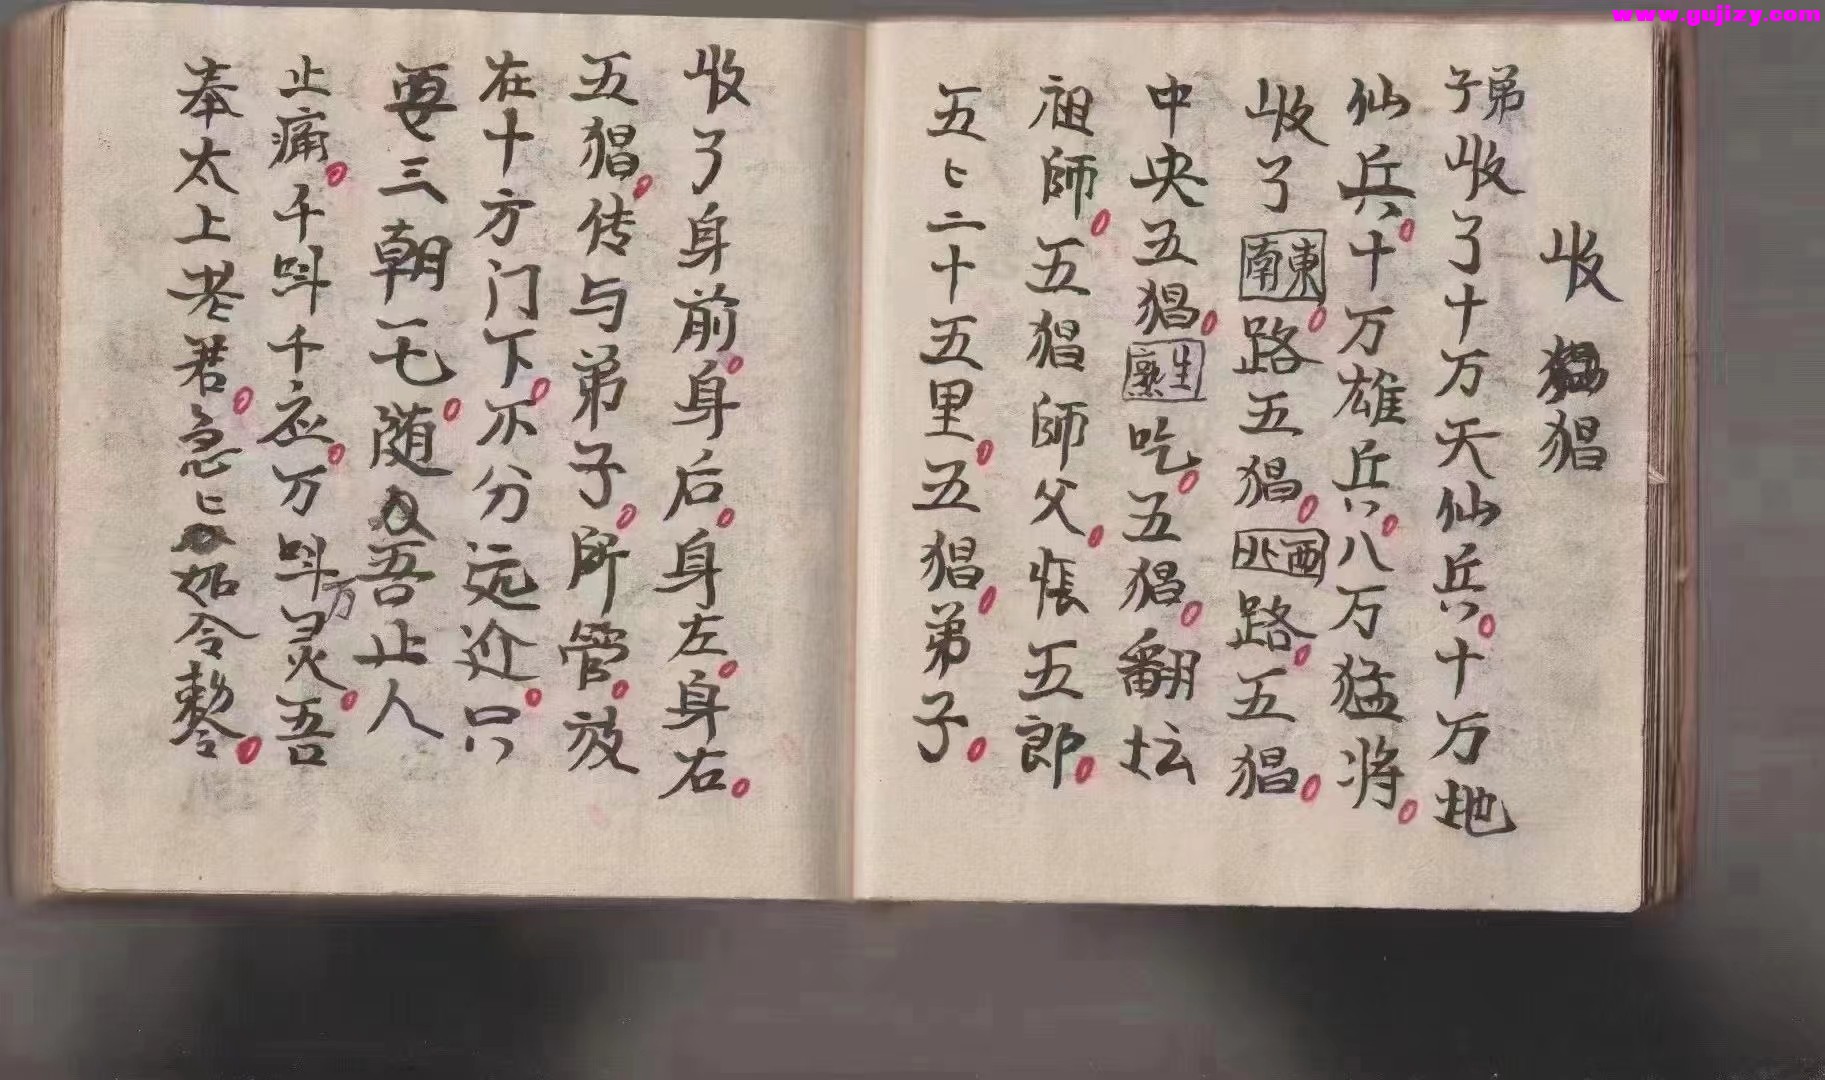 www.gujizy.com
收猖
弟子收了十万天仙兵。十万地
仙兵。十万雄兵。八万猛将。
收了東南。路五猖。西北路。五猖。
中央五猖。生熟吃。五猖。翻坛
祖師。五猖師父。悵五郎。
五〻二十五里。五猖。弟子。
收了身前。身后。身左。身右。
五猖。传与弟子。所管。放
在十方门下。不分远近。只
要三朝一七。随吾止人
止痛。千叫千应。万叫万灵。吾
奉太上老君。急〻如令敕令。